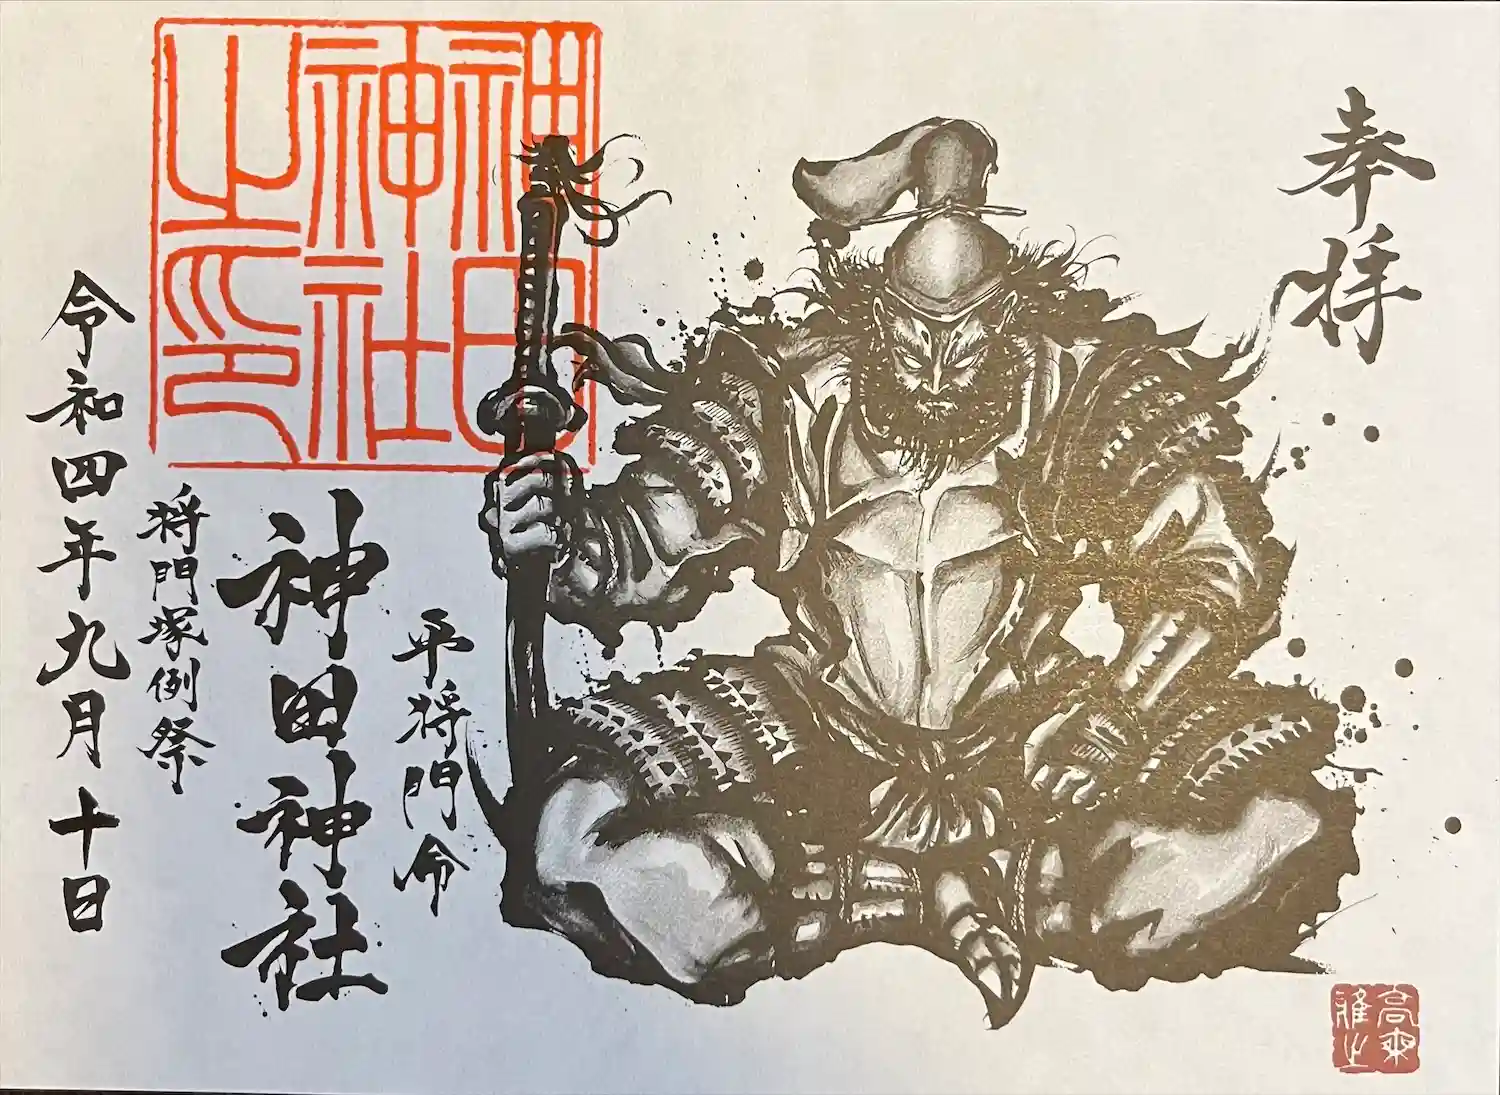 奉拝
平将門命
神田神社
将門塚例祭
令和四年九月十日
神田
神社
之印